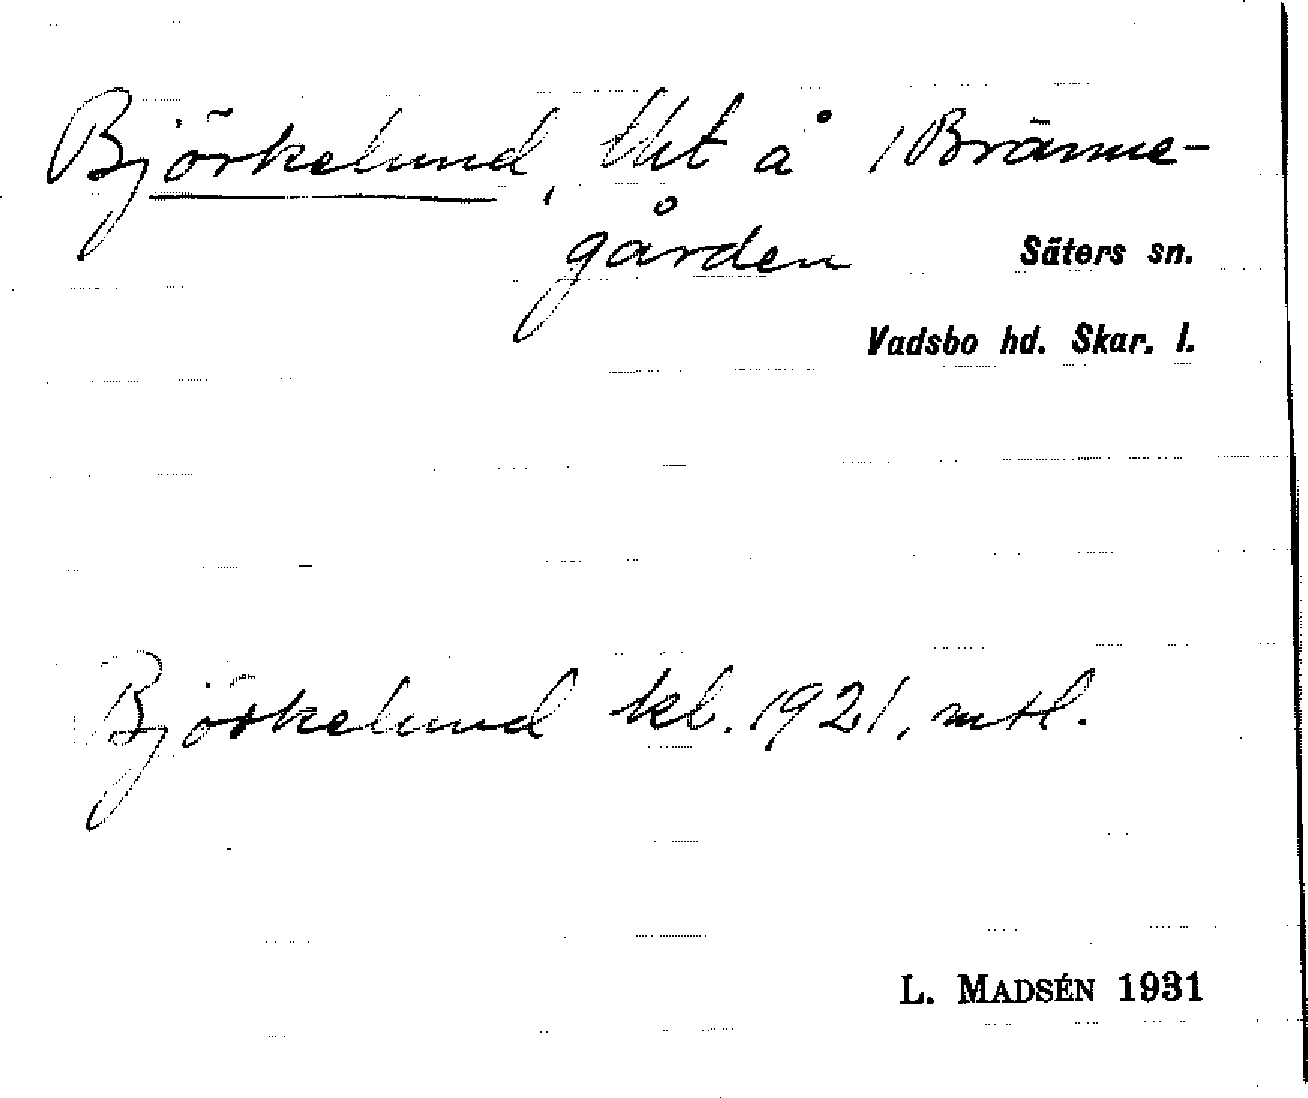 Björkelund, lht å 1 Bränne-
gården
Säters sn.
Vadsbo hd. Skar. l.
Björkelund kl. 1921, mtl.
L. MADSÉN 1931